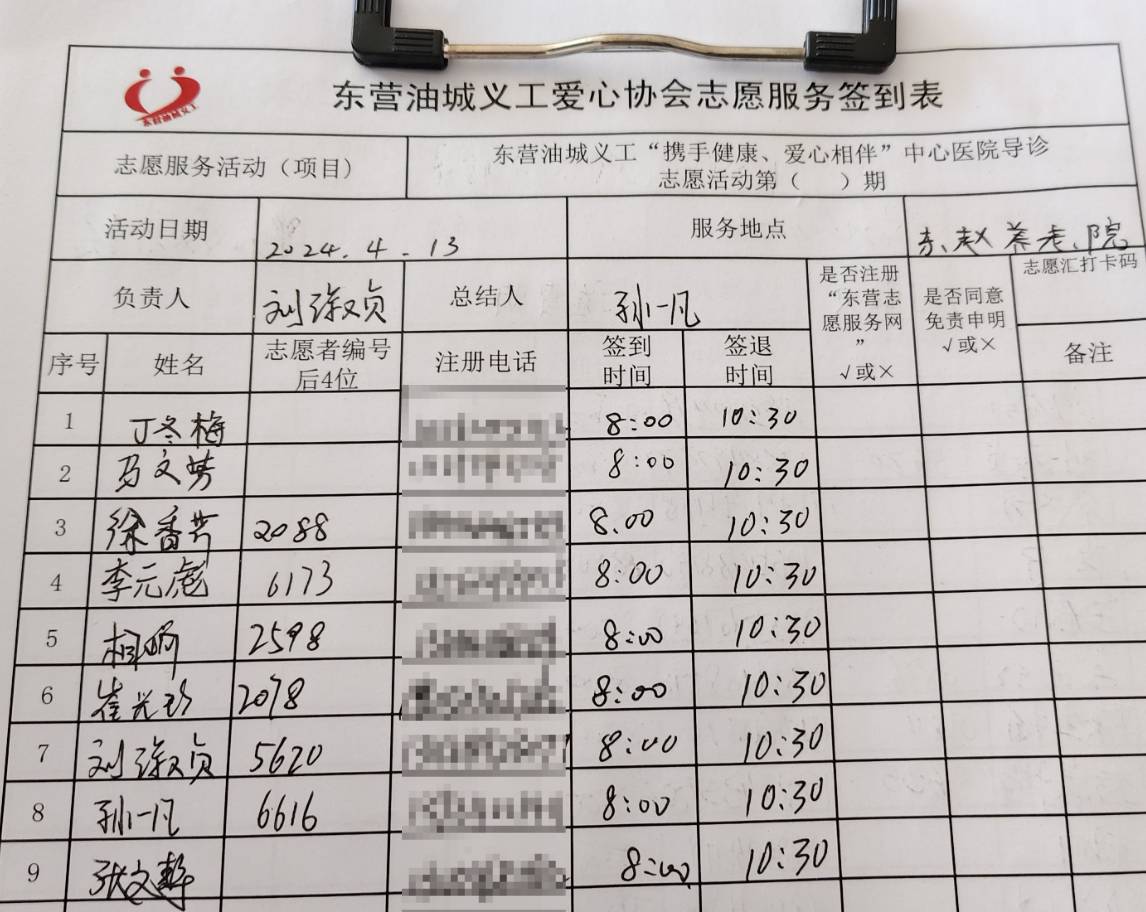 东营油城义工
东营油城义工爱心协会志愿服务签到表
志愿服务活动（项目）
东营油城义工“携手健康、爱心相伴”中心医院导诊
志愿活动第（ ）期
活动日期
2024.4.13
服务地点
东赵养老院
负责人
刘淑贞
总结人
孙一凡
是否注册
“东营志
愿服务网
”
√或×
是否同意
免责申明
√或×
志愿汇打卡码
序号 姓名
志愿者编号
后4位
注册电话
签到
时间
签退
时间
备注
1 丁冬梅 8:00 10:30
2 马文芳 8:00 10:30
3 徐香芳 2088 8.00 10:30
4 李元彪 6173 8:00 10:30
5 2598 8:00 10:30
6 崔光珍 2078 8:00 10:30
7 刘淑贞 5620 8:00 10:30
8 孙一凡 6616 8:00 10:30
9 张文 8:00 10:30